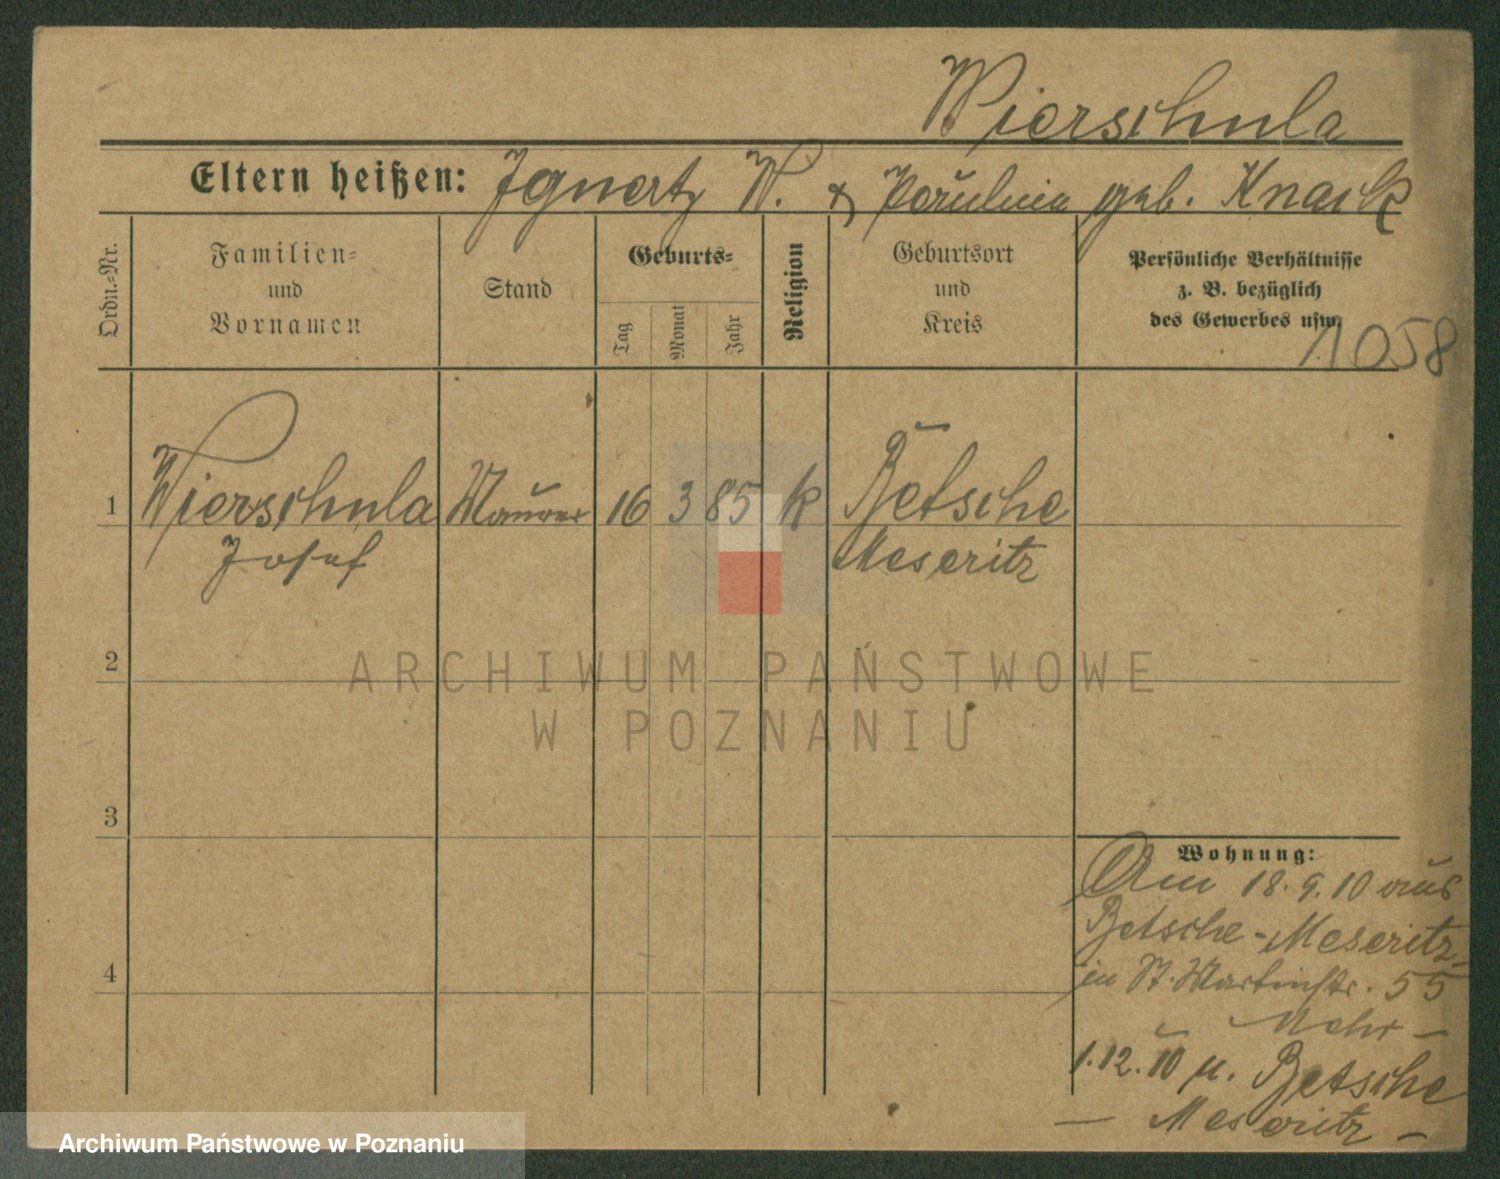 Wierschula
Eltern heißen: Ignatz W. & Paulina geb. Knack
Ordn.-Nr.
Familien-
und
Vornamen
Stand
Geburts-
Tag
Monat
Jahr
Religion
Geburtsort
und
Kreis
Persönliche Verhältnisse
z. B. bezüglich
des Gewerbes usw.
1058
1 Wierschula Maurer 16 3 85 k Betsche
Josef Meseritz
2
3
4
Wohnung:
Am 18.9.10 aus
Betsche-Meseritz
in St. Martinstr. 55
1.12.10 n. Betsche
— Meseritz —
ARCHIWUM PAŃSTWOWE
W POZNANIU
Archiwum Państwowe w Poznaniu